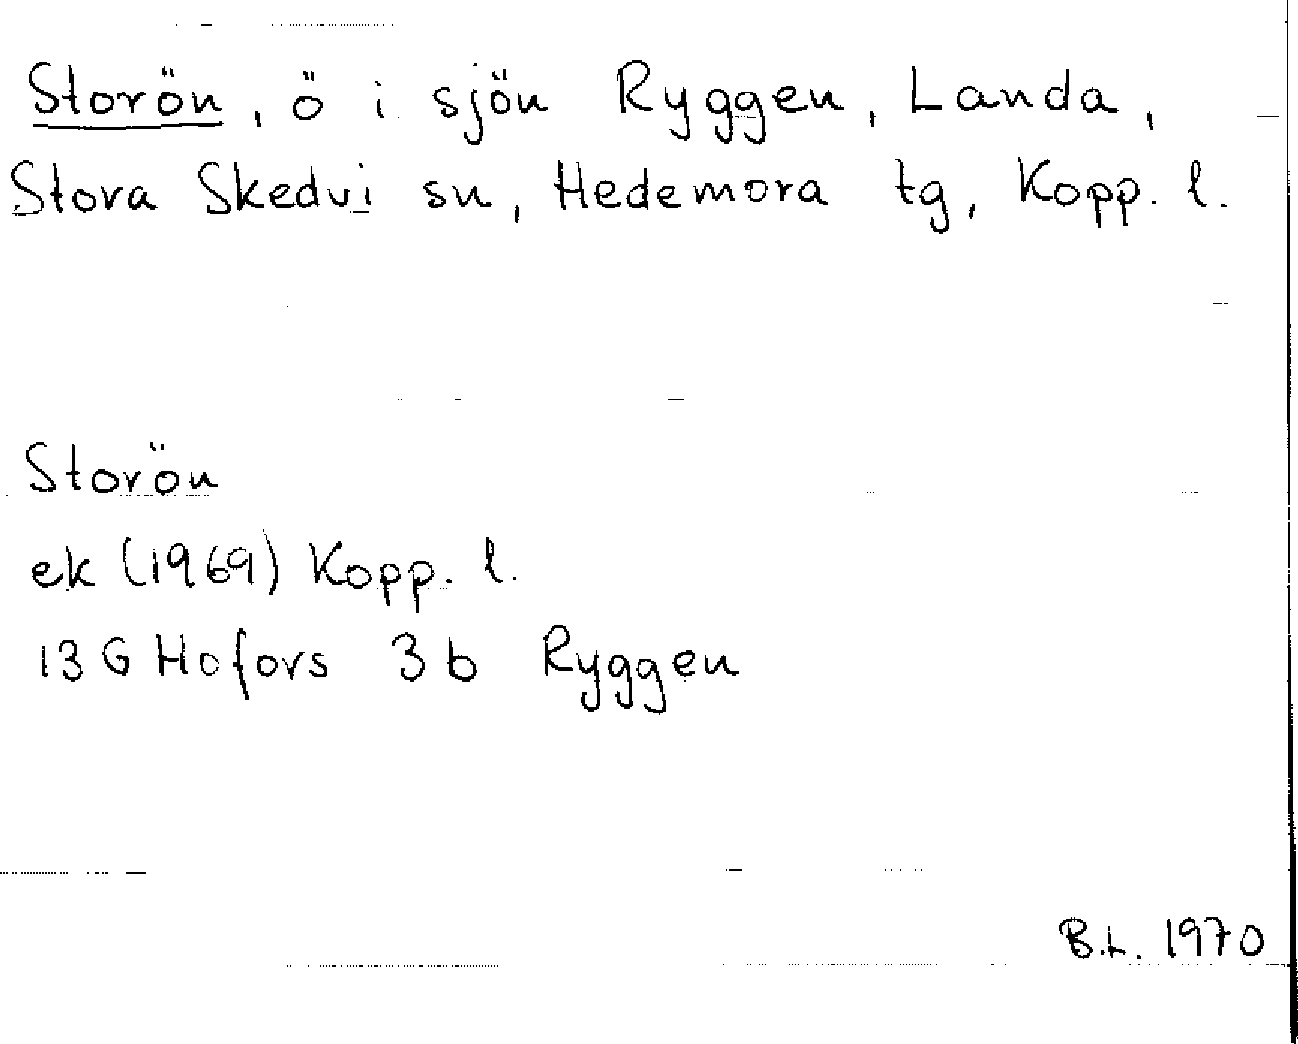 Storön, ö i sjön Ryggen, Landa,
Stora Skedvi sn, Hedemora tg, Kopp. l.
Storön
ek (1969) Kopp. l.
13 G Hofors 3 b Ryggen
B.L. 1970